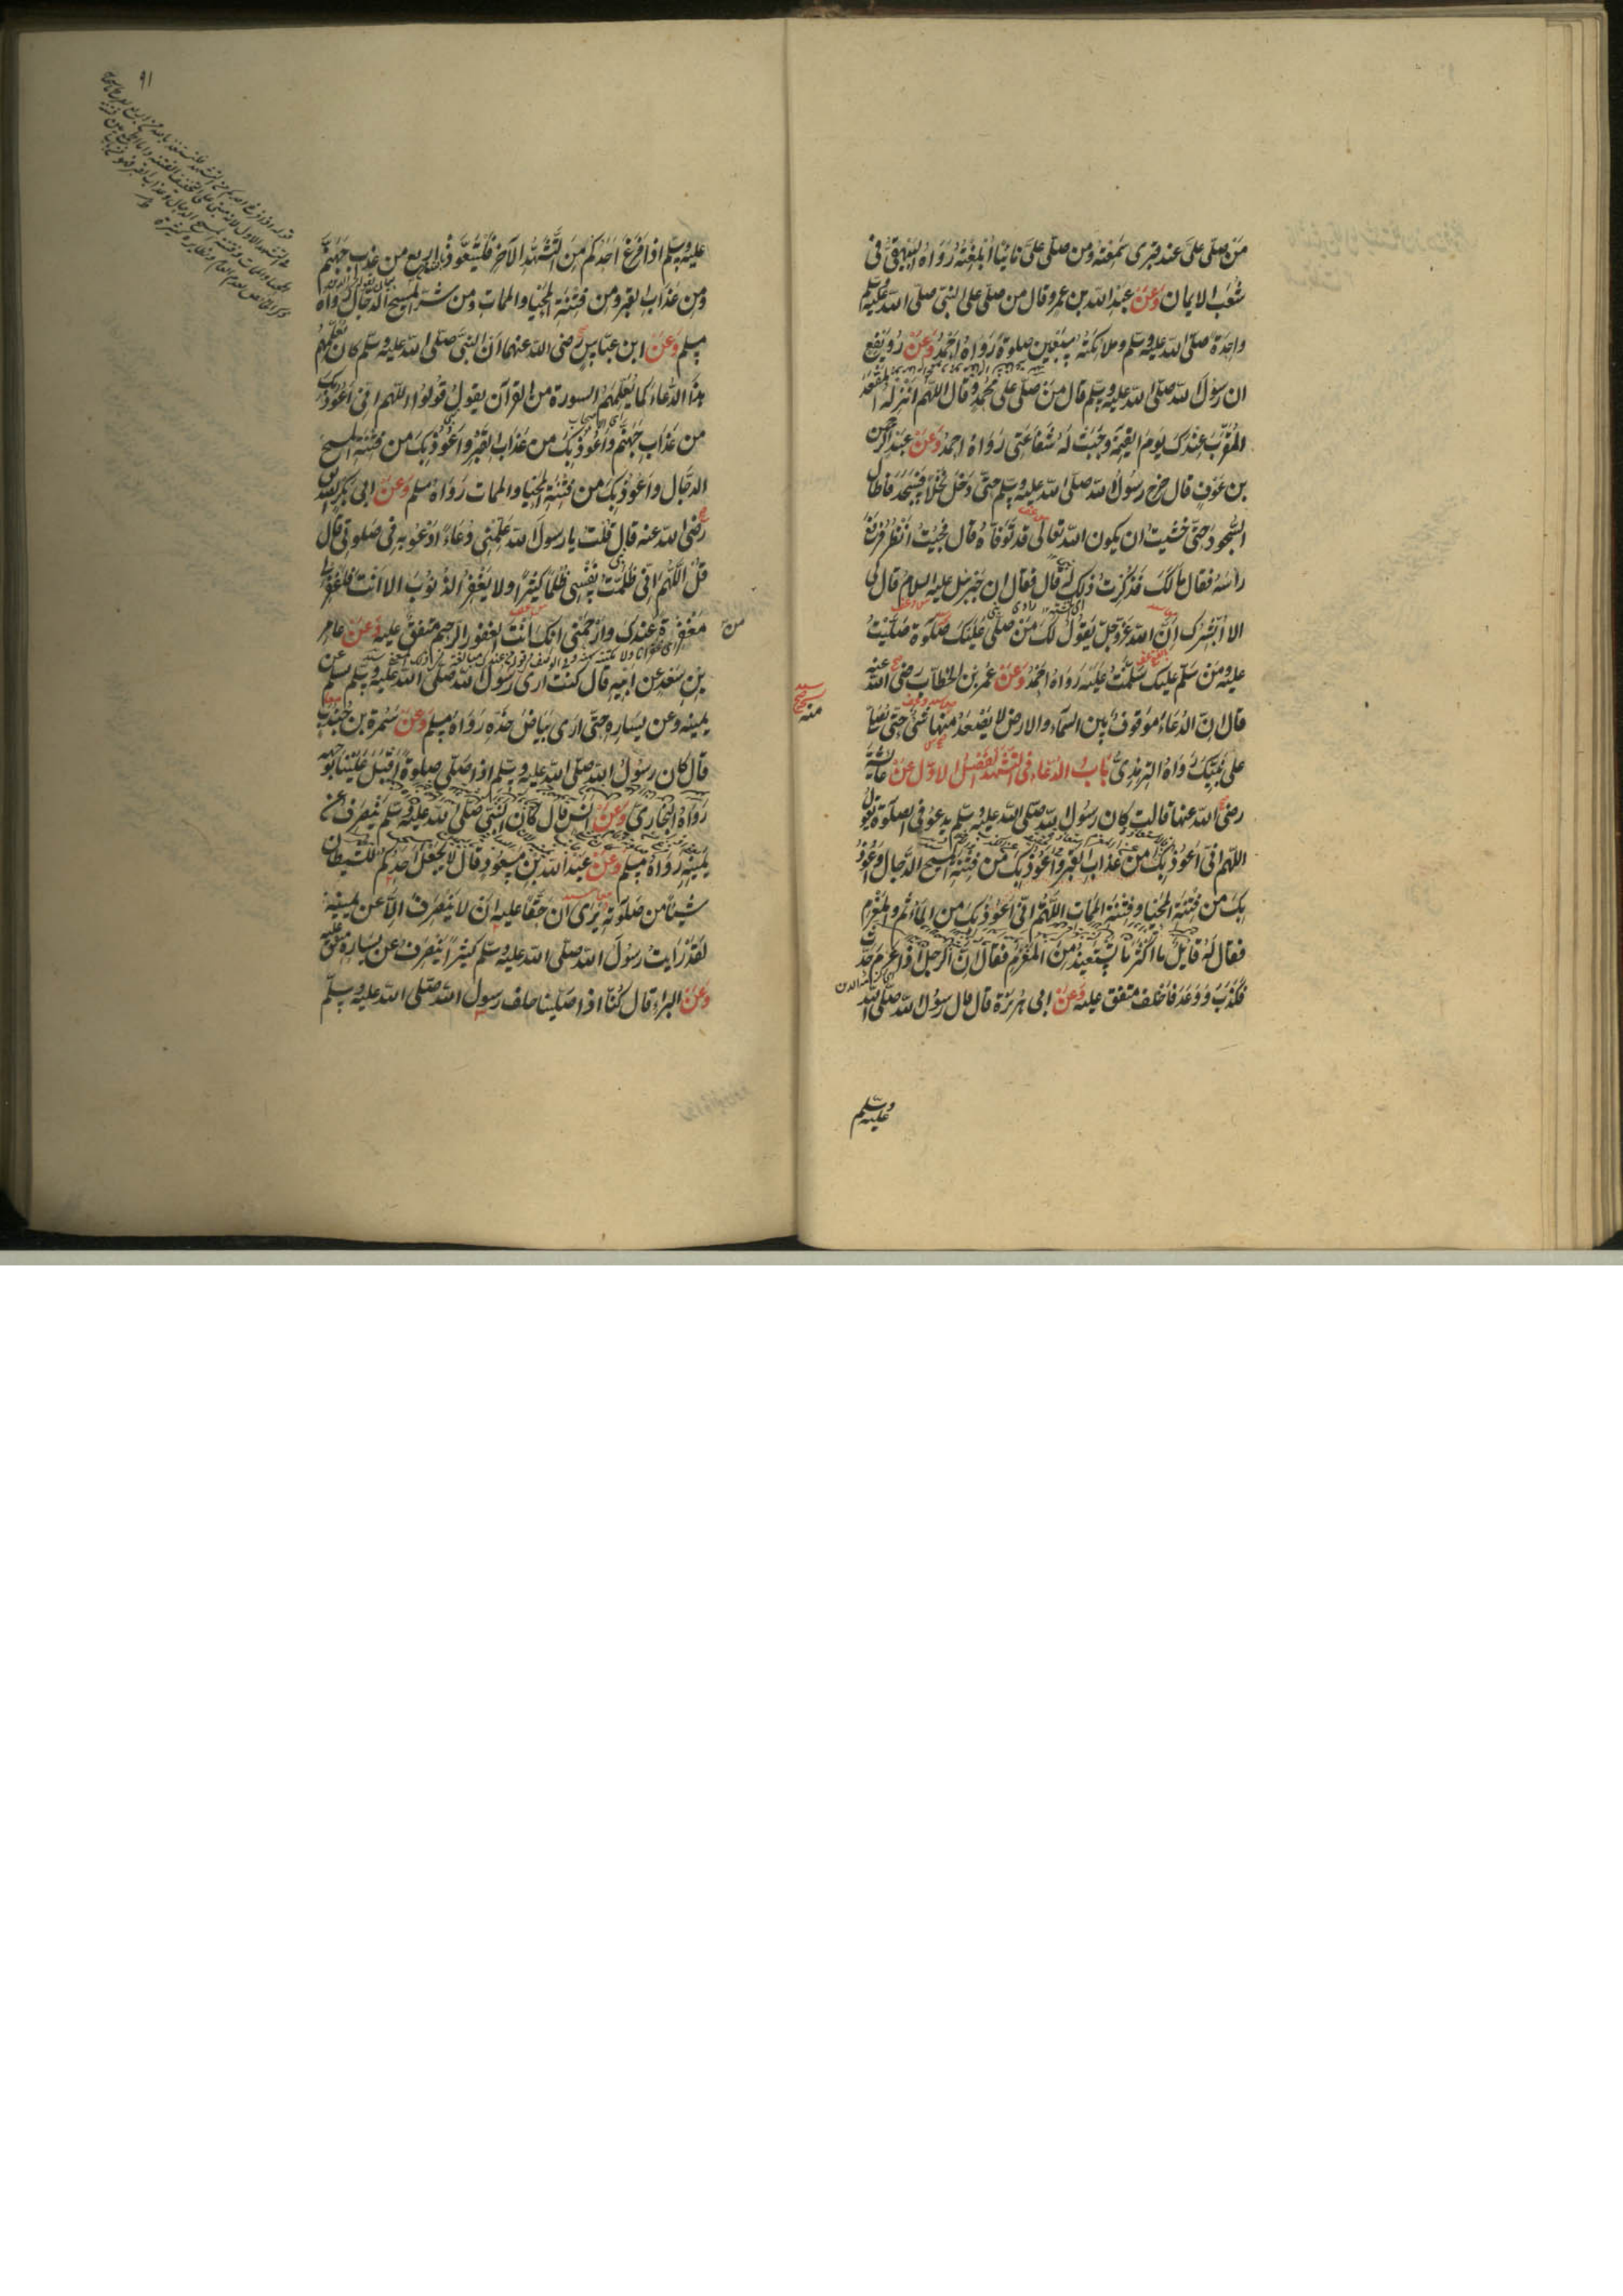 من صلى على عند قبرى سمعته ومن صلى على نائيا ابلغته رواه البيهقى فى
شعب الايمان وعن عبد الله بن عمرو قال من صلى على النبى صلى الله عليه وسلم
واحدة صلى الله عليه وسلم وملائكته سبعين صلوة رواه احمد وعن رويفع
ان رسول الله صلى الله عليه وسلم قال من صلى على محمد وقال اللهم انزله المقعد
المقرب عندك يوم القيمة وجبت له شفاعتى رواه احمد وعن عبد الرحمن
بن عوف قال خرج رسول الله صلى الله عليه وسلم حتى دخل نخلا فسجد فاطال
السجود حتى خشيت ان يكون الله تعالى قد توفاه قال فجئت انظر فرفع
راسه فقال مالك فذكرت ذلك له قال فقال ان جبرئيل عليه السلام قال لى
الا ابشرك ان الله عز وجل يقول لك من صلى عليك صلوة صليت
عليه ومن سلم عليك سلمت عليه رواه احمد وعن عمر بن الخطاب رضى الله عنه
قال ان الدعاء موقوف بين السماء والارض لا يصعد منها شئ حتى تصلى
على نبيك رواه الترمذى باب الدعاء فى التشهد الفصل الاول عن عائشة
رضى الله عنها قالت كان رسول الله صلى الله عليه وسلم يدعو فى الصلوة يقول
اللهم انى اعوذ بك من عذاب القبر واعوذ بك من فتنة المسيح الدجال واعوذ
بك من فتنة المحيا وفتنة الممات اللهم انى اعوذ بك من الماثم والمغرم
فقال له قايل ما اكثر ما تستعيذ من المغرم فقال ان الرجل اذا غرم حدث
فكذب ووعد فاخلف متفق عليه وعن ابى هريرة قال قال رسول الله صلى الله
عليه وسلم
٩١
عليه وسلم اذا فرغ احدكم من التشهد الآخر فليتعوذ بالله من اربع من عذاب جهنم
ومن عذاب القبر ومن فتنة المحيا والممات ومن شر المسيح الدجال رواه
مسلم وعن ابن عباس رضى الله عنهما ان النبى صلى الله عليه وسلم كان يعلمهم
هذا الدعاء كما يعلمهم السورة من القرآن يقول قولوا اللهم انى اعوذ بك
من عذاب جهنم واعوذ بك من عذاب القبر واعوذ بك من فتنة المسيح
الدجال واعوذ بك من فتنة المحيا والممات رواه مسلم وعن ابى بكر الصديق
رضى الله عنه قال قلت يا رسول الله علمنى دعاء ادعو به فى صلوتى قال
قل اللهم انى ظلمت نفسى ظلما كثيرا ولا يغفر الذنوب الا انت فاغفر لى
مغفرة من عندك وارحمنى انك انت الغفور الرحيم متفق عليه وعن عامر
بن سعد عن ابيه قال كنت ارى رسول الله صلى الله عليه وسلم يسلم عن
يمينه وعن يساره حتى ارى بياض خده رواه مسلم وعن سمرة بن جندب
قال كان رسول الله صلى الله عليه وسلم اذا صلى صلوة اقبل علينا بوجهه
رواه البخارى وعن انس قال كان النبى صلى الله عليه وسلم ينصرف عن
يمينه رواه مسلم وعن عبد الله بن مسعود قال لا يجعل احدكم للشيطان
شيئا من صلوته يرى ان حقا عليه ان لا ينصرف الا عن يمينه
لقد رايت رسول الله صلى الله عليه وسلم كثيرا ينصرف عن يساره متفق عليه
وعن البراء قال كنا اذا صلينا خلف رسول الله صلى الله عليه وسلم